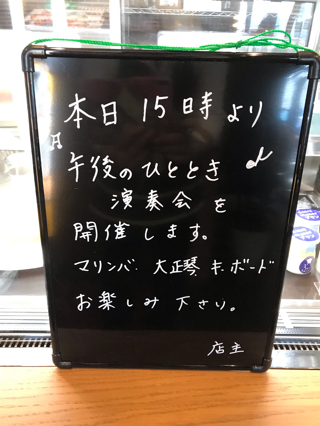 本日 15時より
午後のひととき
演奏会を
開催します。
マリンバ. 大正琴 キ.ボード
お楽しみ下さい。
店主